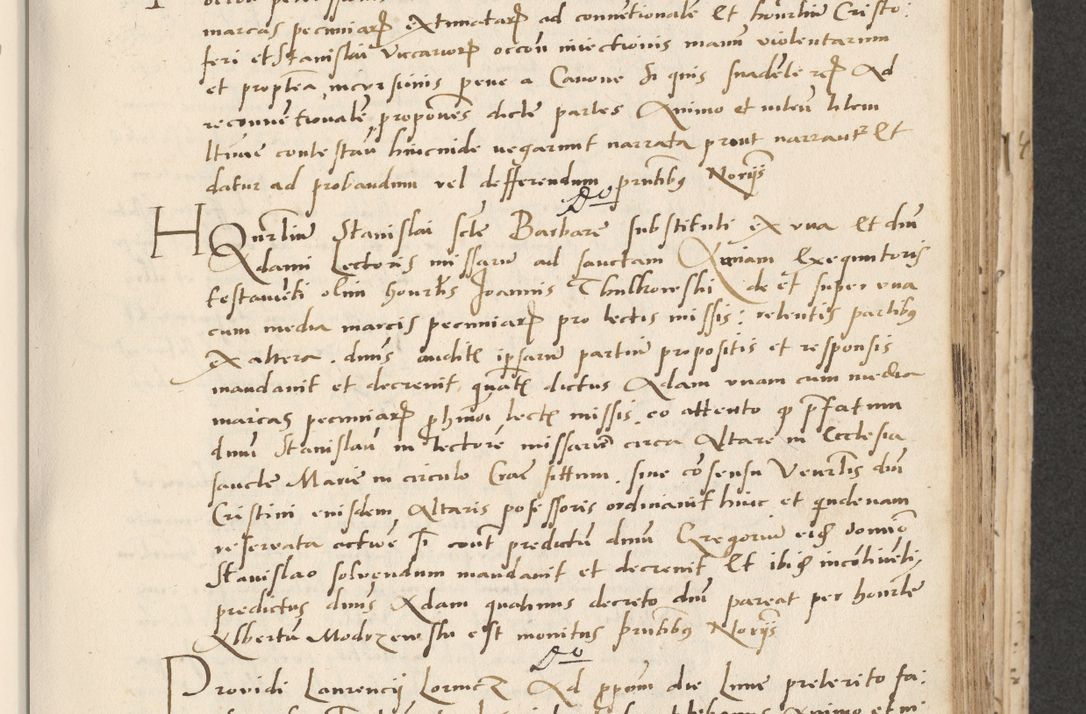 marcas pecuniarꝝ extimatarꝝ ad conventionalē Et honorabiliū Cristo:
feri et Stanislai vicariorꝝ occōn iniectionis manuū violentarum
et propterea incursionis pene a Canone Si quis suadēte &c Ad
reconventionalē proponēs dicte partes Animo et litem
litis conteſtan̄ hincinde negarunt narrata prout narrantur Et
datur ad probandum vel defferendum pn̄tibus Noriis
Do
Honorabiliū Stanislai scte Barbare substituti ex una Et dni
Adami Lectoris missarū ad sanctam Annam Exequutoris
testamēti olim honorabilis Joannis de et super una
cum media marcis pecuniarꝝ pro lectis missis: retentis partibus
ex altera. dnus auditis ipsarū partiū propositis et responsis
mandavit et decrevit, quatenus dictus Adam unam cum media
marcas pecuniarꝝ pro hmoi lectis missis, eo attento quod prefatum
dnum Stanislaū in lectorē missarū circa Altare in Ecclesia
sancte Marie in circulo Crac sittum, sine cōsensu Venerabilis dni
Cristini eiusdem Altaris possessoris ordinavit huic et quidem
reservata actiōe si cont predictū dnum Gregoriū eisdem domino
Stanislao solvendum mandavit et decrevit Et ibidem incōtinēti,
predictus dnus Adam quatinus decreto dni pareat per honorabilē
Albertū Modrzewsky est monitus pn̄tibus Noriis
Do
Providi Laurencii Ad pp̄um die Lune preterito fa: